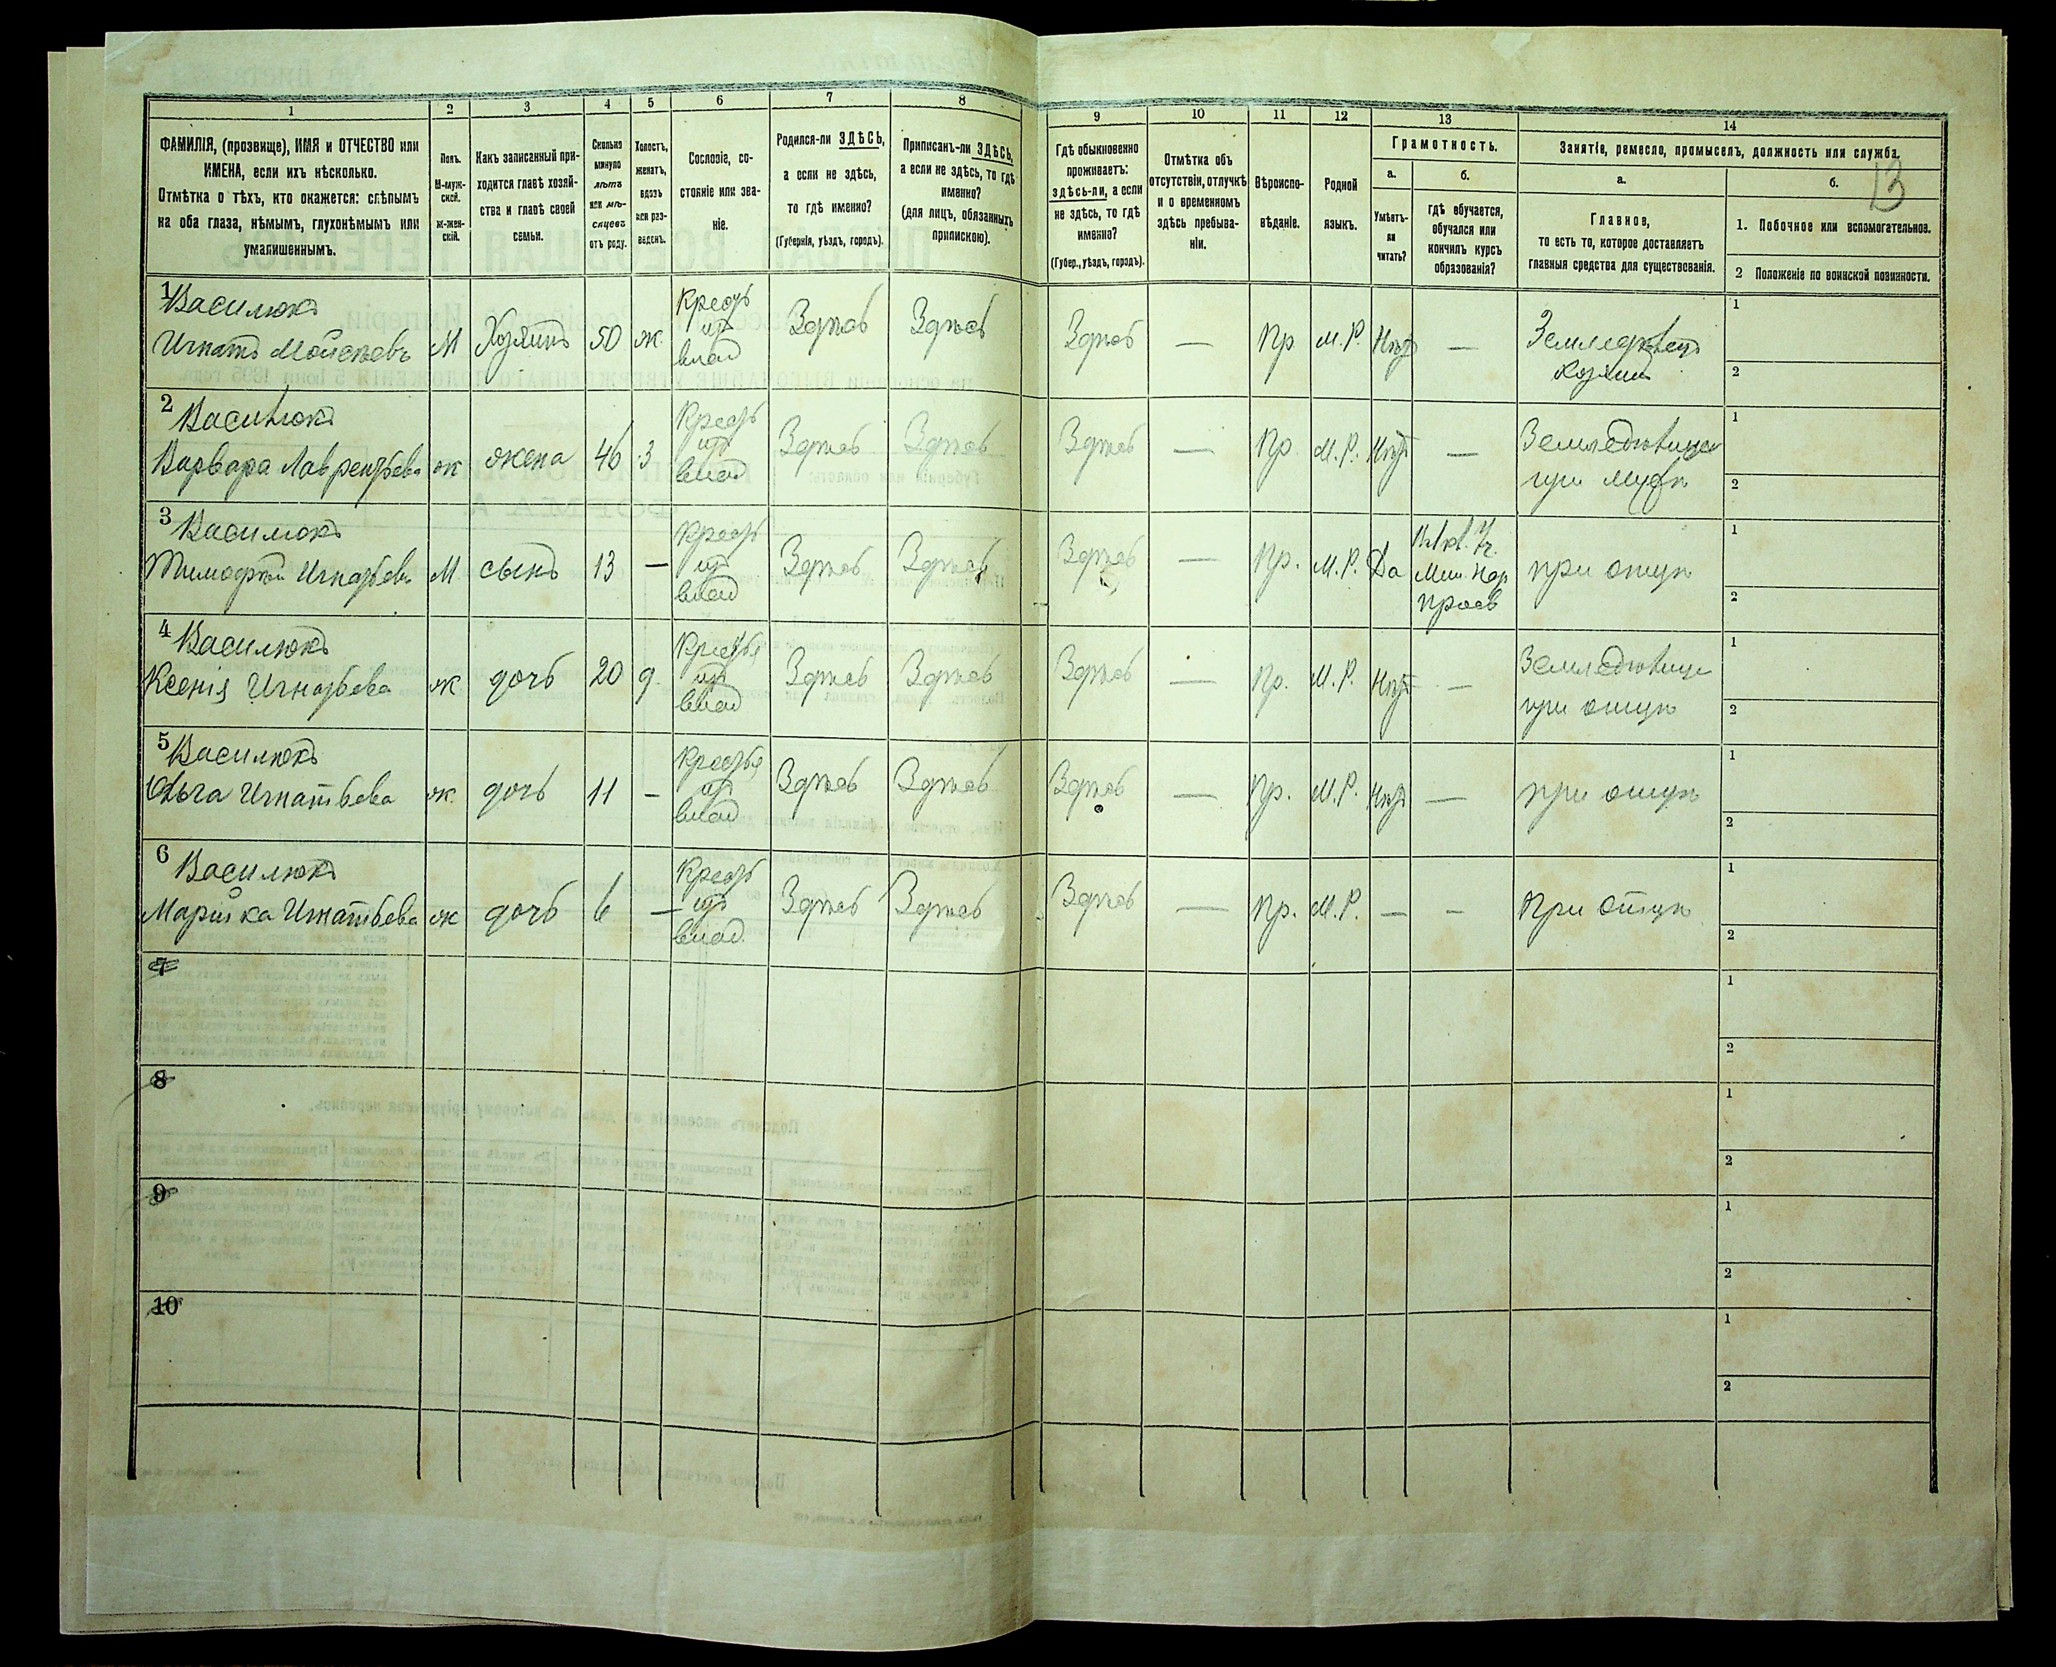 1
2
3
4
5
6
7
8
9
10
11
12
13
14
ФАМИЛІЯ, (прозвище), ИМЯ и ОТЧЕСТВО или
ИМЕНА, если ихъ нѣсколько.
Отмѣтка о тѣхъ, кто окажется: слѣпымъ
на оба глаза, нѣмымъ, глухонѣмымъ или
умалишеннымъ.
Полъ.
М-муж-
ской.
ж-жен-
скій.
Какъ записанный при-
ходится главѣ хозяй-
ства и главѣ своей
семьи.
Сколько
минуло
лѣтъ
или мѣ-
сяцевъ
отъ роду.
Холостъ,
женатъ,
вдовъ
или раз-
веденъ.
Сословіе, со-
стояніе или зва-
ніе.
Родился-ли ЗДѢСЬ,
а если не здѣсь,
то гдѣ именно?
(Губернія, уѣздъ, городъ).
Приписанъ-ли ЗДѢСЬ,
а если не здѣсь, то гдѣ
именно?
(для лицъ, обязанныхъ
припискою).
Гдѣ обыкновенно
проживаетъ:
здѣсь-ли, а если
не здѣсь, то гдѣ
именно?
(Губер., уѣздъ, городъ).
Отмѣтка объ
отсутствіи, отлучкѣ
и о временномъ
здѣсь пребыва-
ніи.
Вѣроиспо-
вѣданіе.
Родной
языкъ.
Грамотность.
а.
б.
Умѣетъ-
ли
читать?
гдѣ обучается,
обучался или
кончилъ курсъ
образованія?
Занятіе, ремесло, промыселъ, должность или служба.
13
а.
б.
Главное,
то есть то, которое доставляетъ
главныя средства для существованія.
1. Побочное или вспомогательное.
2 Положеніе по воинской повинности.
1 Василюкъ
Игнатъ Мойсѣевъ М Хозяинъ 50 ж. Крестъ из влад Здѣсь Здѣсь Здѣсь — Пр М.Р. Нѣтъ — Земледѣлецъ
Хозяин
1
2
2 Василюкъ
Варвара Лаврентьева ж жена 46 з Крестъ из влад Здѣсь Здѣсь Здѣсь — Пр. М.Р. Нѣт — Земледѣлица
при мужѣ
1
2
3 Василюкъ
Тимофей Игнатьевъ М сынъ 13 — Крестъ из влад Здѣсь Здѣсь Здѣсь — Пр. М.Р. Да Мин. Нар. Просв при отцѣ
1
2
4 Василюкъ
Ксенія Игнатьева ж дочь 20 д. Крестья из влад Здѣсь Здѣсь Здѣсь — Пр. М.Р. Нѣт — Земледѣлица
при отцѣ
1
2
5 Василюкъ
Ольга Игнатьева ж. дочь 11 — Крестья из влад Здѣсь Здѣсь Здѣсь — Пр. М.Р. Нѣт — при отцѣ
1
2
6 Василюкъ
Марійка Игнатьева ж дочь 6 — Крестъ из влад. Здѣсь Здѣсь Здѣсь — Пр. М.Р. — — При отцѣ
1
2
7
1
2
8
1
2
9
1
2
10
1
2